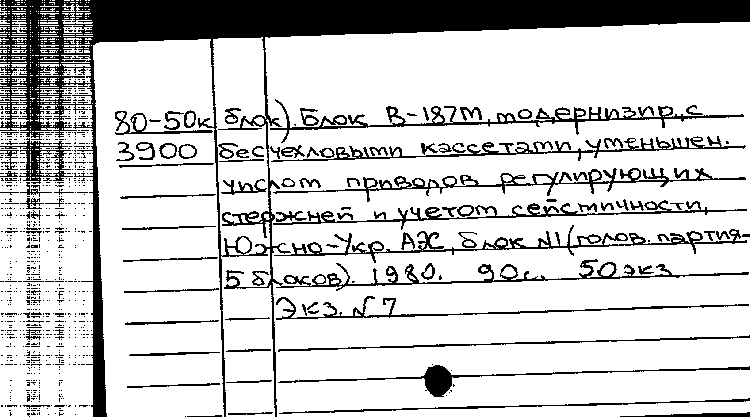 80-50к блок). Блок В-187М, модернизир, с
3900 бесчехловыми кассетами, уменьшен.
числом приводов регулирующих
стержней и учетом сейсмичности,
Южно-Укр. АЭС, блок №1 (голов. партия-
5 блоков). 1980. 90с. 50 экз
Экз. №7